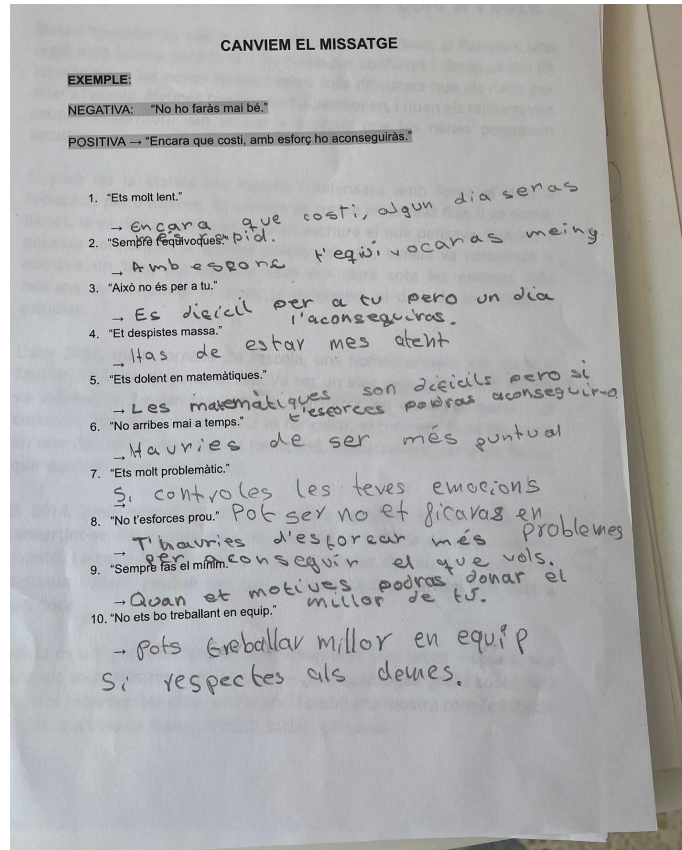 CANVIEM EL MISSATGE
EXEMPLE:
NEGATIVA: "No ho faràs mai bé."
POSITIVA → "Encara que costi, amb esforç ho aconseguiràs."
1. "Ets molt lent."
→ Encara que costi, algun dia seras
més rapid.
2. "Sempre t'equivoques."
→ Amb esforç t'equivocaras meing
3. "Això no és per a tu."
→ Es dificil per a tu pero un dia
l'aconseguiras.
4. "Et despistes massa."
→ Has de estar mes atent
5. "Ets dolent en matemàtiques."
→ Les matemàtiques son dificils pero si
t'esforces podras aconseguir-o
6. "No arribes mai a temps."
→ Hauries de ser més puntual
7. "Ets molt problemàtic."
→ Si controles les teves emocions
Pot ser no et ficaras en
problemes
8. "No t'esforces prou."
→ T'hauries d'esforcar més
per aconseguir el que vols.
9. "Sempre fas el mínim."
→ Quan et motives podras donar el
millor de tu.
10. "No ets bo treballant en equip."
→ Pots treballar millor en equip
Si respectes als demes.